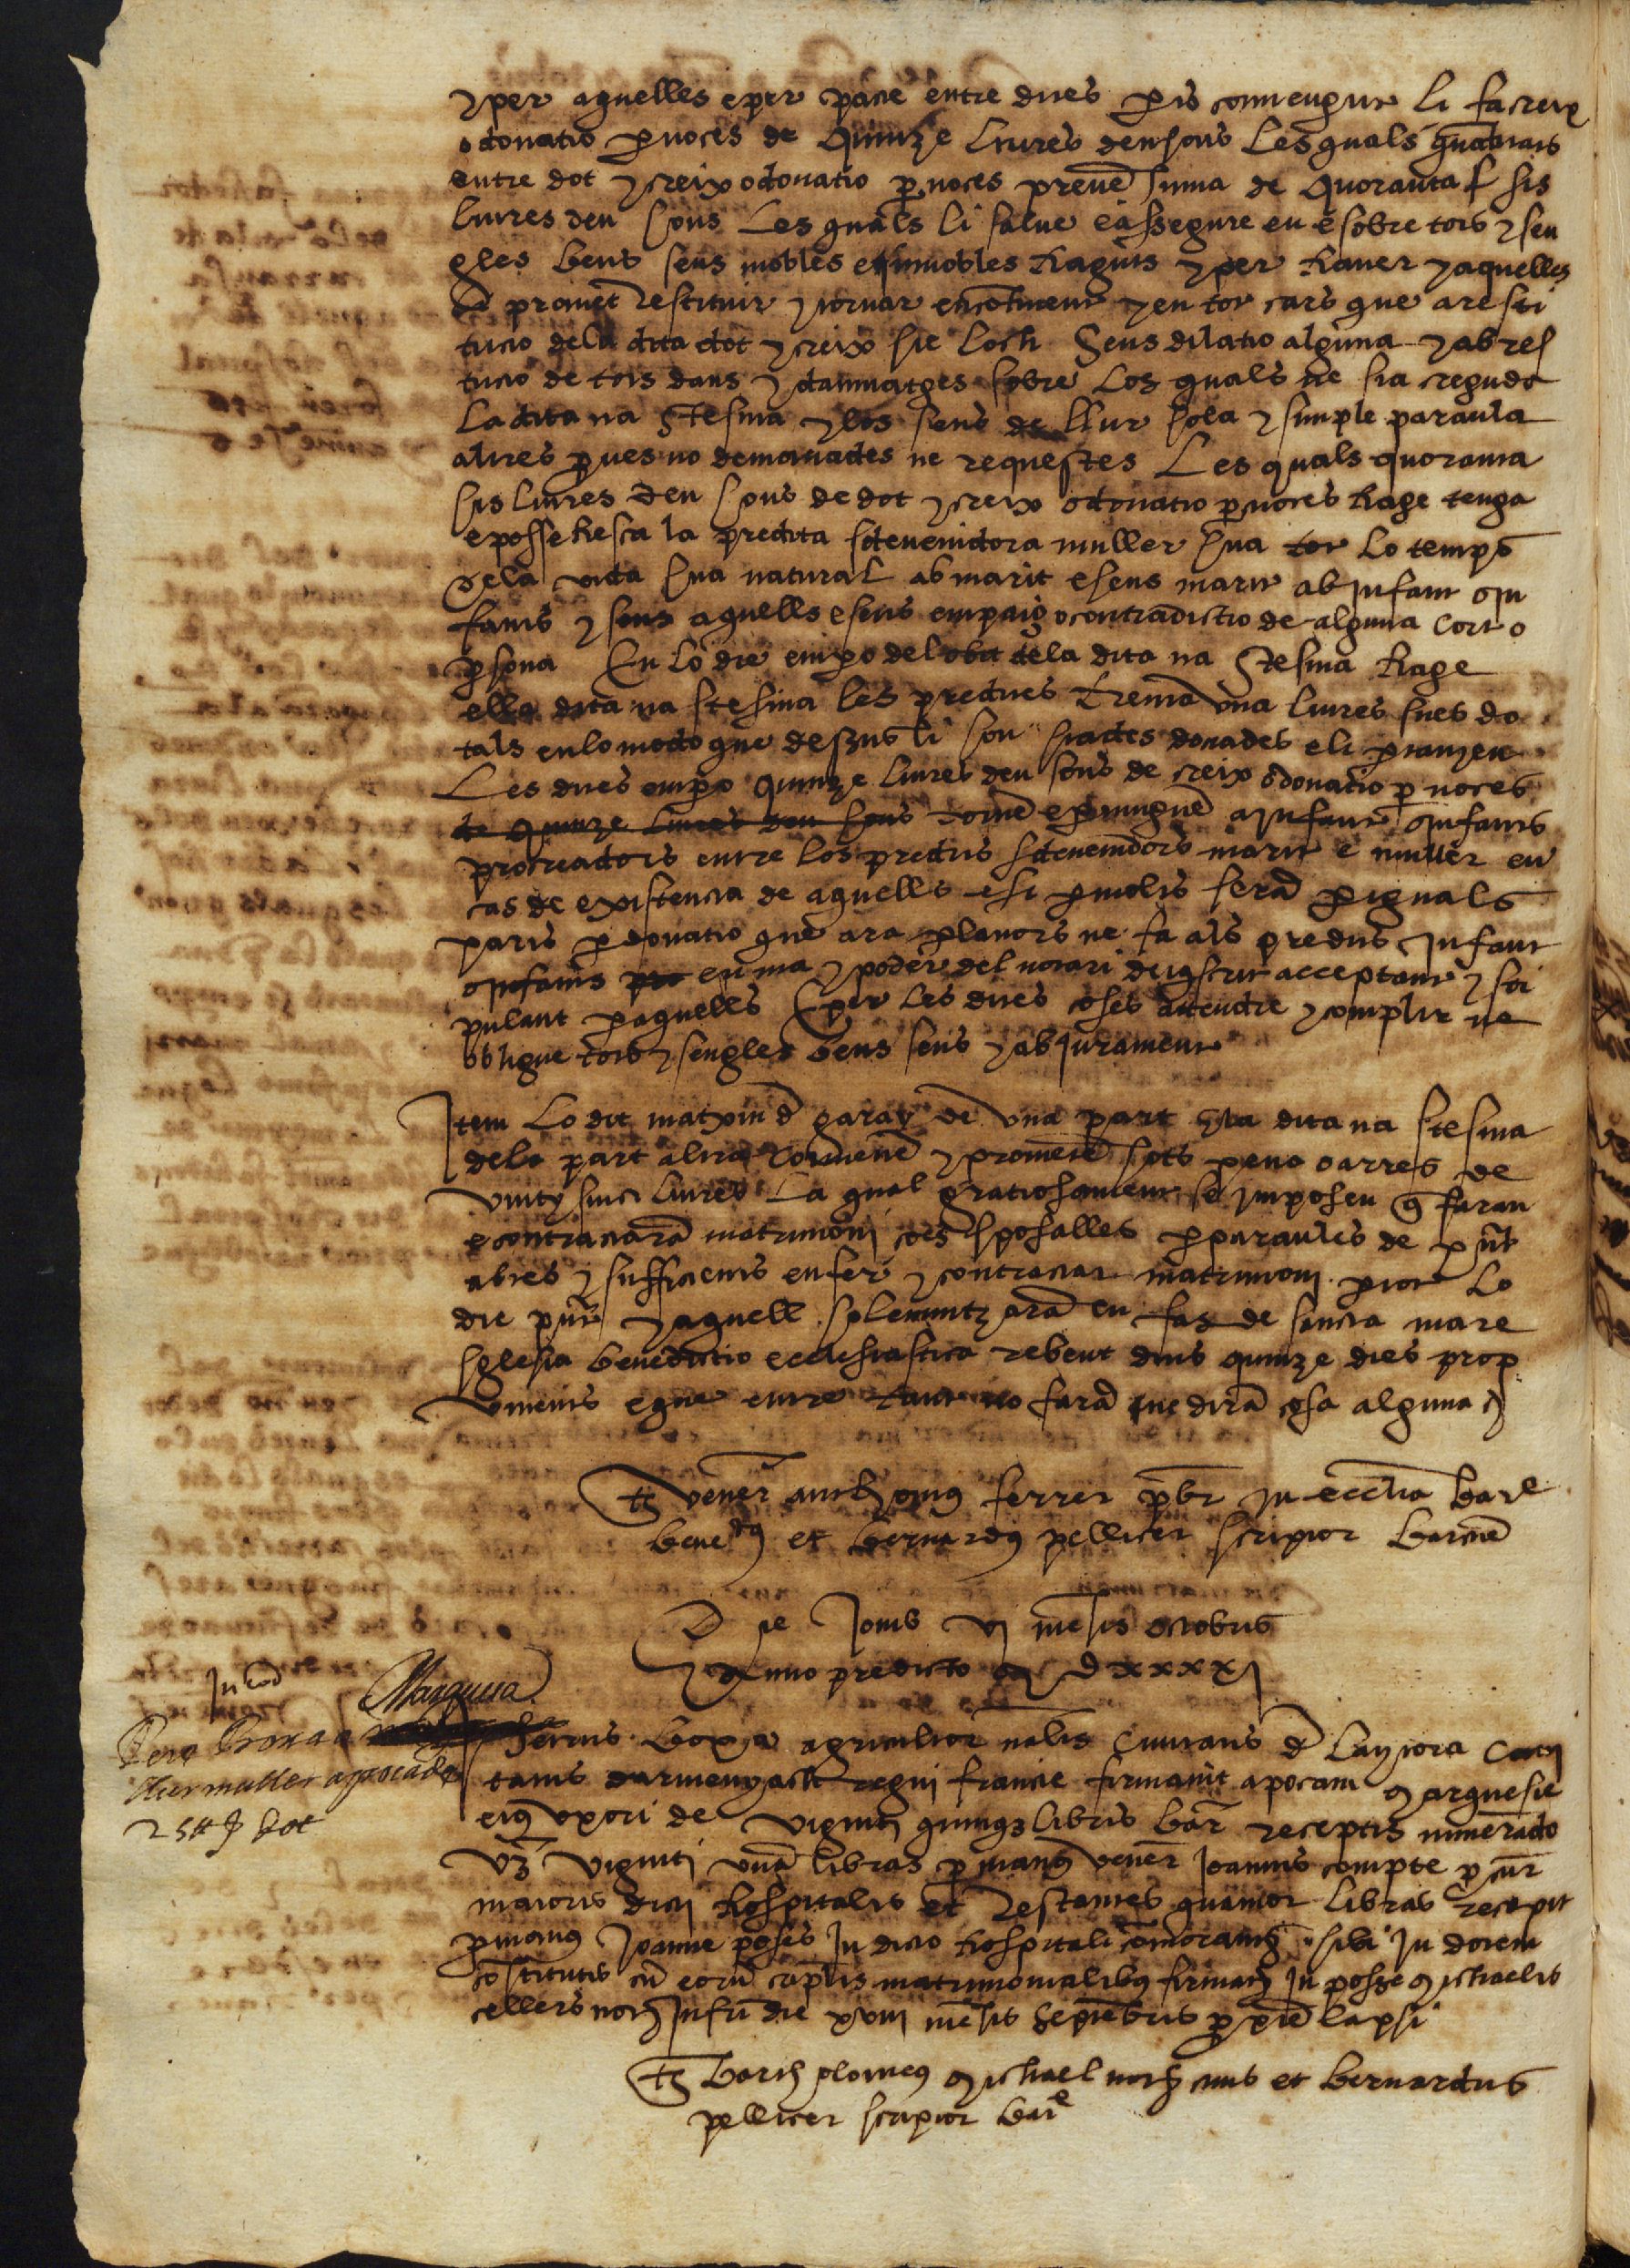 y per aquelles e per pacte entre dites pts convengut li fa creix
o donatio p noces de Quinze liures deu sous Les quals quantitats
entre dot y creix o donatio p noces prenen suma de Quoranta sis
liures deu sous Les quals li salve e assegure en e sobre tots y sen
gles bens seus mobles e inmobles haguts y per haver y aquelles
li promet restituir y tornar encontinent y en tot cars que a resti
tucio dela dita dot y creix sie loch Sens dilatio alguna y ab res
titucio de tots dans y dampnatges sobre los quals ne sia creguda
la dita na Stefina y los seus de llur sola y simple paraula
altres proves no demanades ne requestes Les quals quoranta
sis liures deu sous de dot y creix o donatio p noces hage tenga
e possehesca la predita sdevenidora muller sua tot lo temps
dela vida sua natural ab marit e sens marit ab infant o in
fants y sens aquells e sens empaig o contradictio de alguna cort o
psona En lo die empo del obit dela dita na Stefina hage
ella dita na Stefina les predites trenta una liures sues do
tals en lo modo que dessus li son stades donades e li ptanyen
Les dites empo quinze liures deu sous de creix o donatio p noces
de quinze liures deu sous tornen e pvinguen a infant o infants
procreadors entre los predits sdevenidors marit e muller en
cas de existencia de aquells e si p molts seran p iguals
parts p donatio que ara p lavors ne fa als predits infant
o infants en ma y poder del notari devall scrit acceptant y sti
pulant p aquells E per les dites coses attendre y complir ne
obligue tots y sengles bens seus y ab jurament
Item Lo dit matxin d garay de una part y la dita na Stefina
dela part altra convenen y prometen sots pena o arres de
vinty sinch liures La qual gratiosament se imposen q faran
e contractaran matrimoni ço es sposalles p paraules de pnt
abtes y sufficients en fer y contractar matrimoni p tot lo
die pnt y aquell solemnitzaran en fas de sancta mare
sglesia benedictio ecclesiastica rebent dins quinze dies prop
vinents e que entre tant no faran ne diran cosa alguna &c
ts vener anthonius ferrer pbr in ecclia barne
benetus et bernardus pellicer scriptor barcine
Die Jovis vj mesis octobris
anno predicto M D xxxxj
In eod
Margusa
Pere Boxa a
sa muller apoca de
25 ll d dot
Petrus boxa agricultor nalis civitatis d laytora
tatus darmenyach regni francie firmavit apocam Marguesie
eius uxori de viginti quinque libris bar receptis numerado
vz viginti una libras p manus vener Joannis compte pcur
maioris dicti hospitalis et restantes quatuor libras recepit
p manus Joanne poses in dicto hospitali comorantis sibi in dotem
constitutis cu eoru caplis matrimonialibus firmatis in posse Michaelis
cellers noti infri die xviii mesis Septembris pxime lapsi
ts bartholomeus Michael not civis et bernardus
pellicer scriptor barne